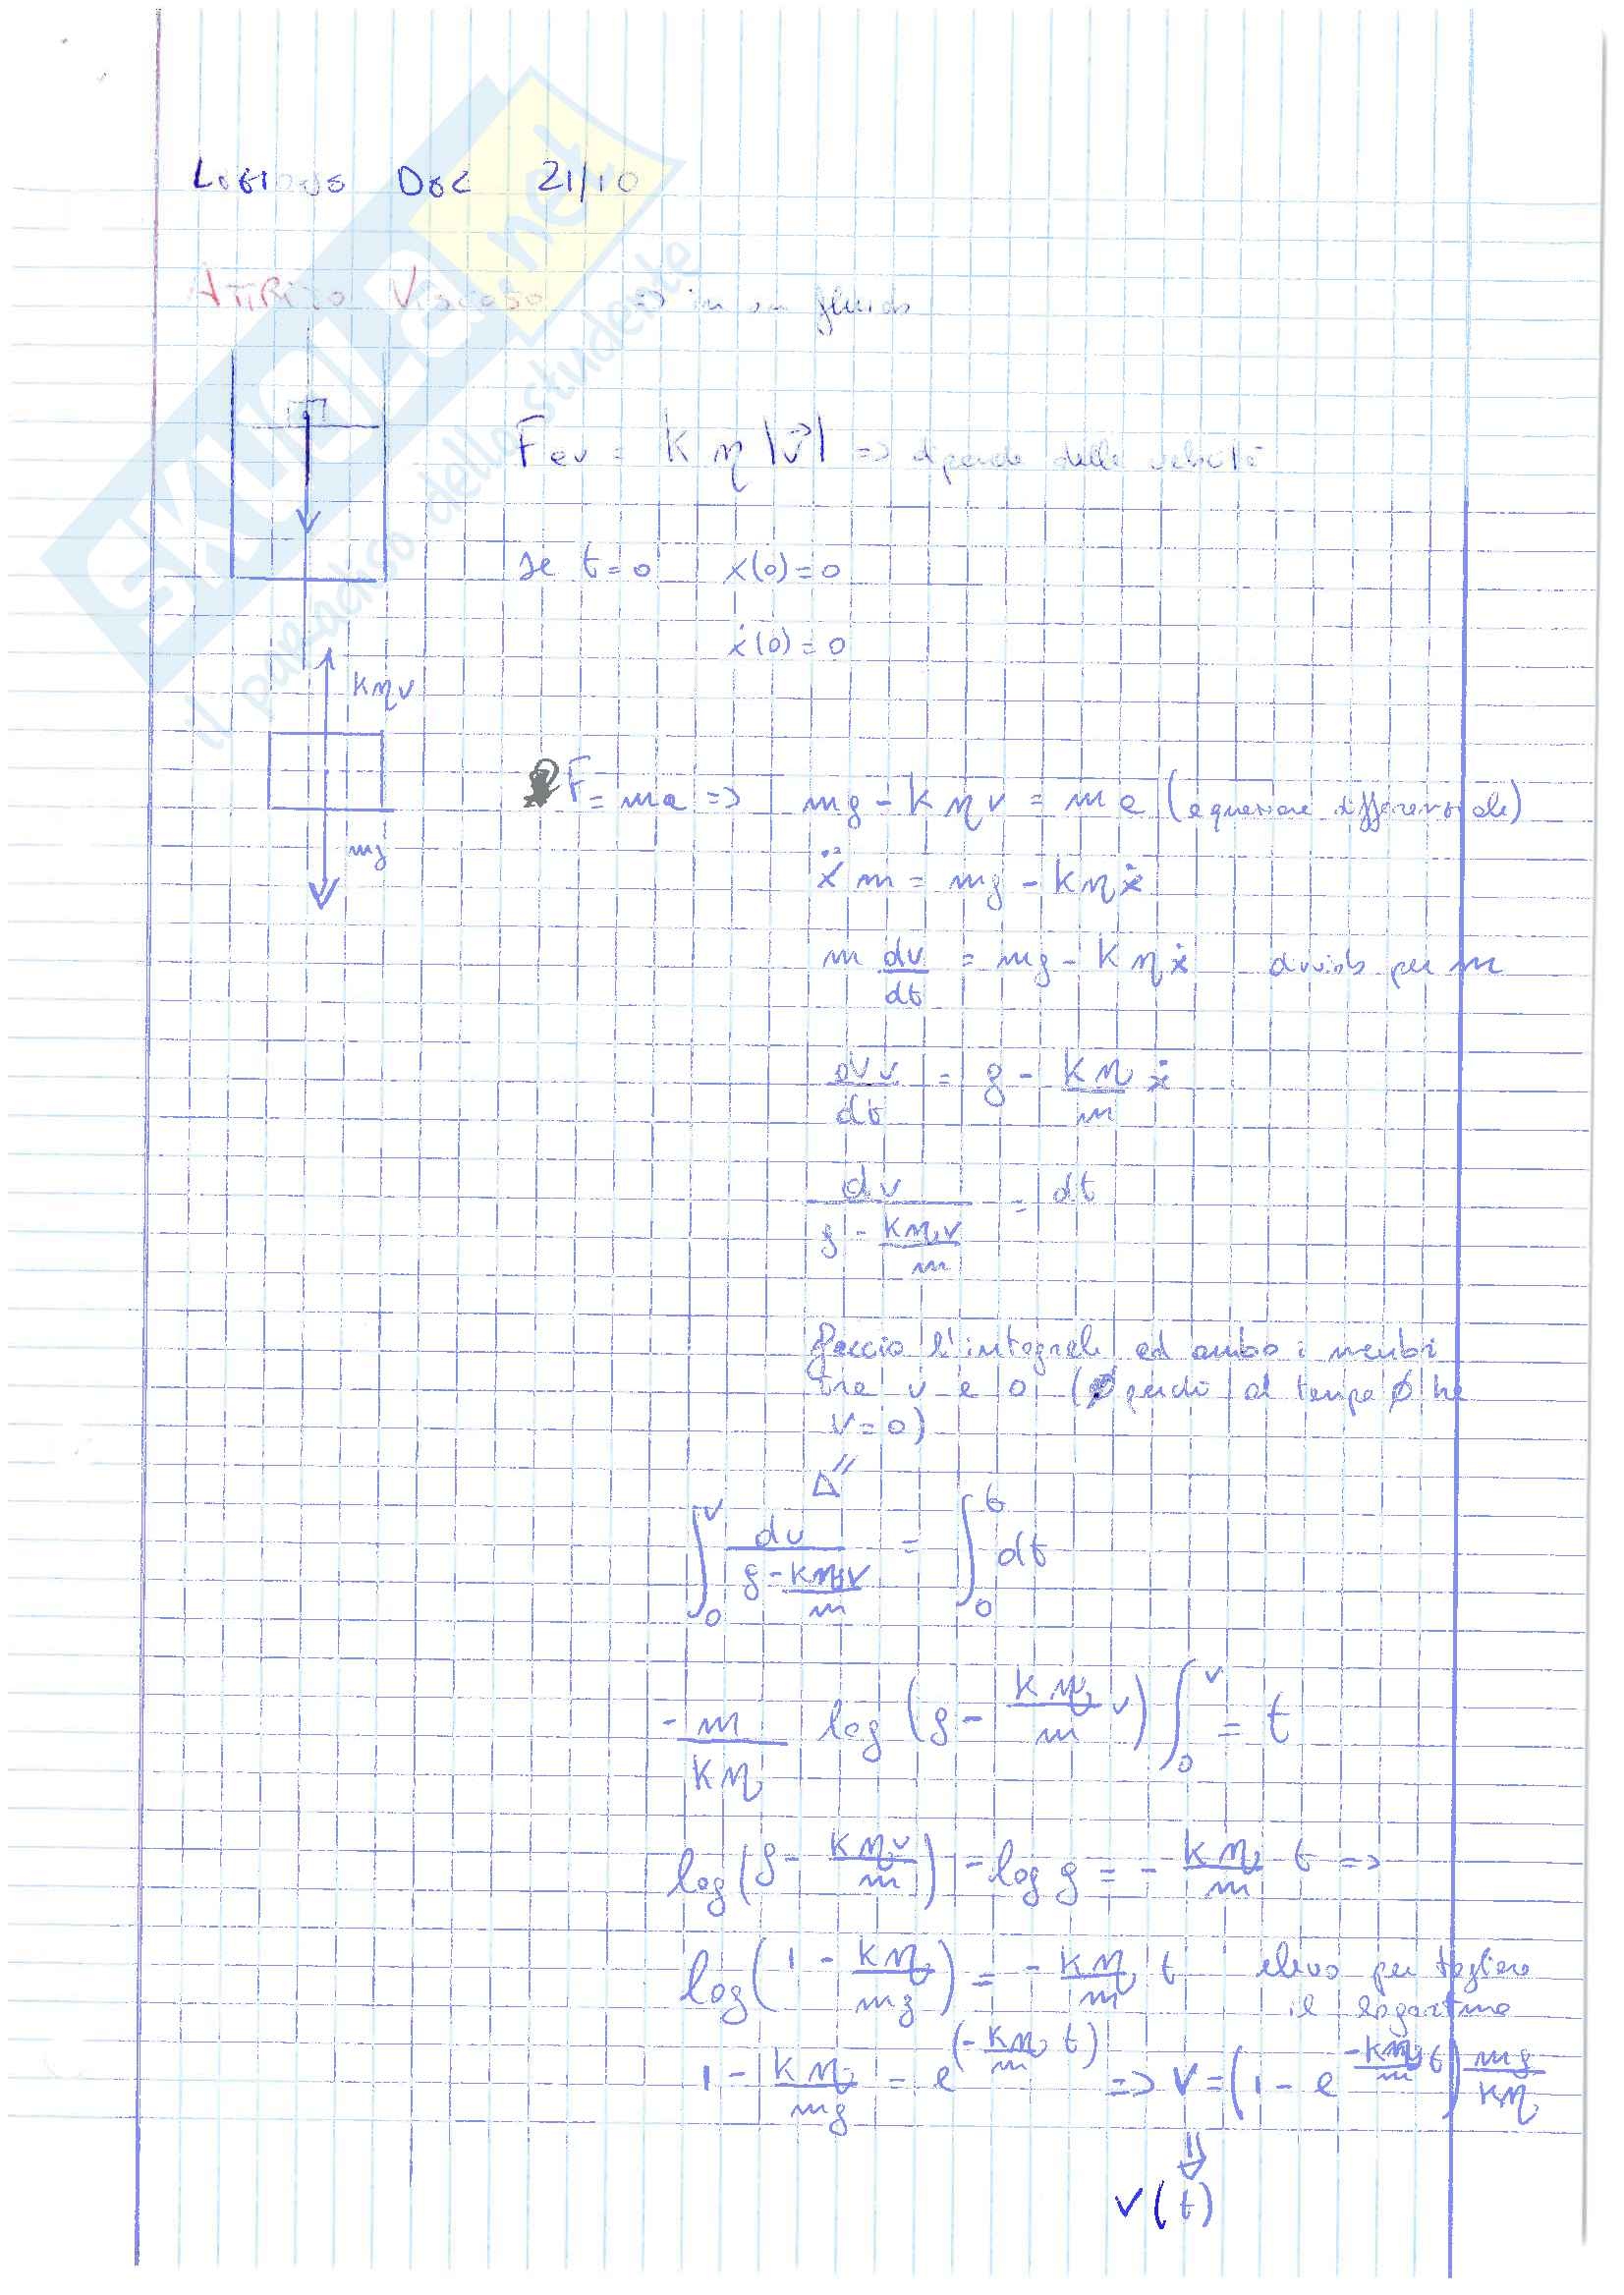 Lezione Doc 21/10
SKUOLA.net
il paradiso dello studente
Attrito Viscoso => in un fluido
Fav = K η |v⃗| => dipende dalla velocità
se t=0 x(0)=0
ẋ(0)=0
Kηv
F=ma => mg - Kηv = ma (equazione differenziale)
mg
ẍ m = mg - Kηẋ
m dv/dt = mg - Kηẋ divido per m
dv/dt = g - Kη/m ẋ
dv/(g - Kηv/m) = dt
faccio l'integrale ad ambo i membri
tra v e 0 (perché al tempo ∅ ha
v=0)
∫₀ᵛ dv/(g - Kηv/m) = ∫₀ᵗ dt
-m/Kη log(g - Kη/m v)∫₀ᵛ = t
log(g - Kηv/m) - log g = - Kη/m t =>
log(1 - Kη/mg) = - Kη/m t elevo per togliere
il logaritmo
1 - Kη/mg = e^(-Kη/m t) => V = (1 - e^(-Kη/m t)) mg/Kη
v(t)